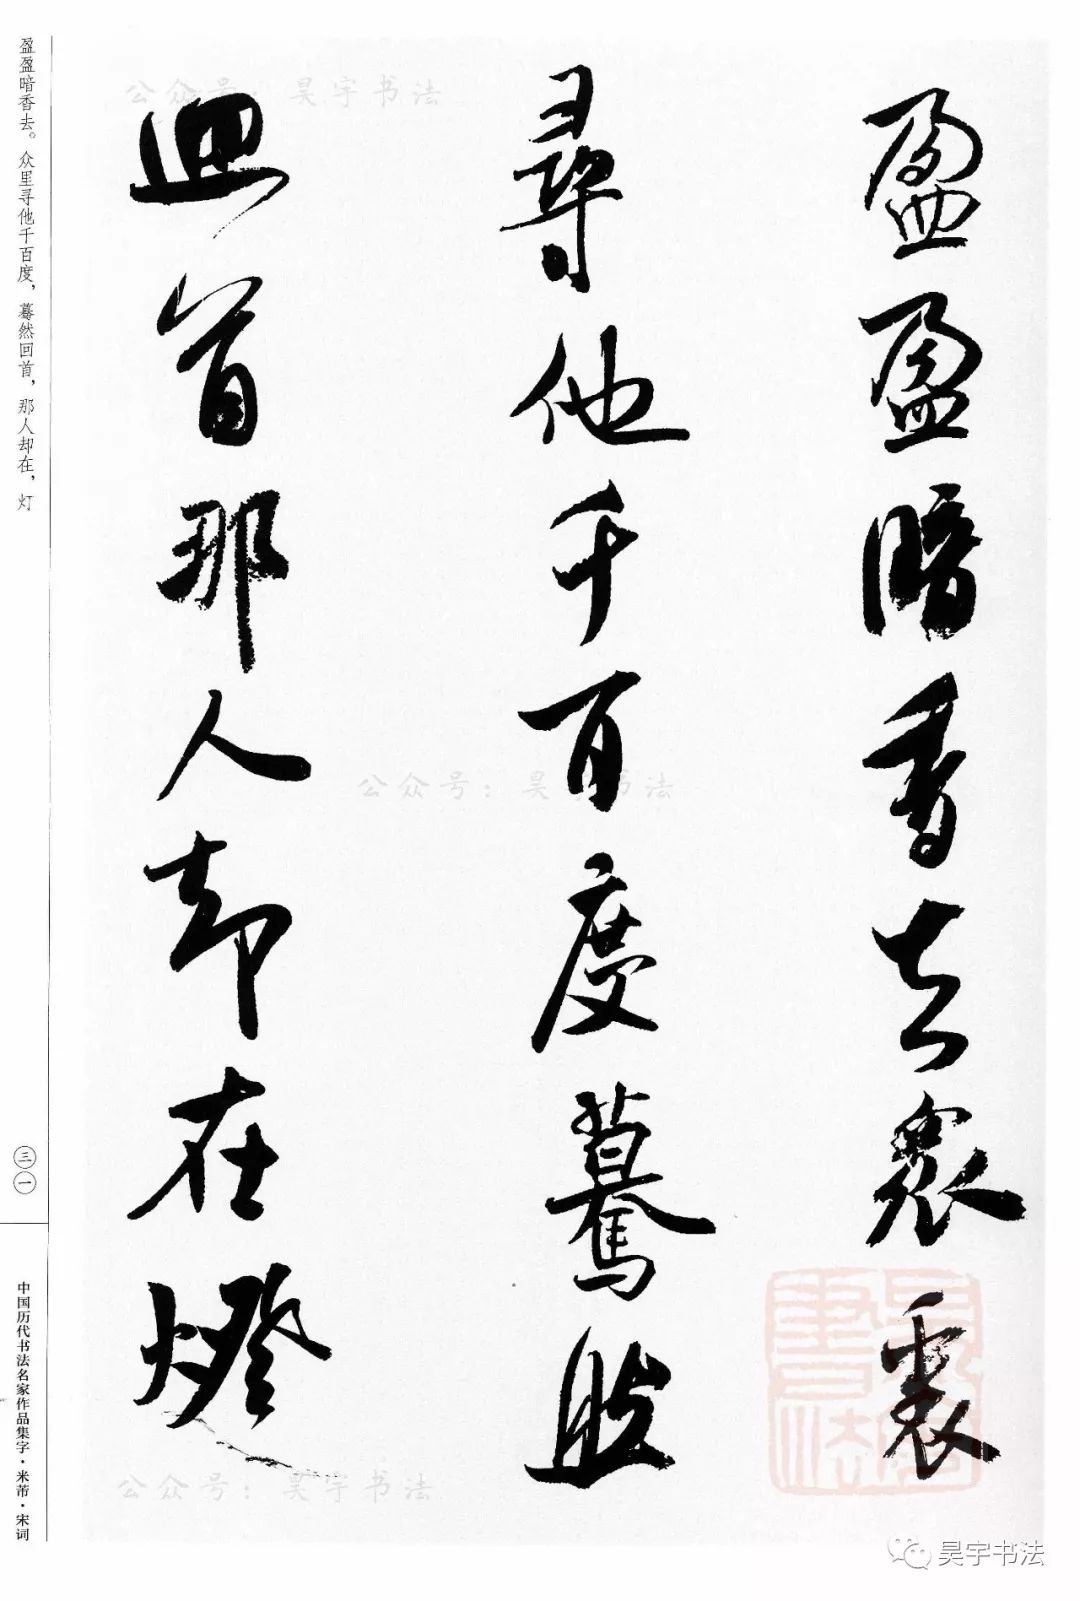 盈盈暗香去衆裏
尋他千百度驀然
迴首那人却在燈
盈盈暗香去。众里寻他千百度，蓦然回首，那人却在，灯
三一
中国历代书法名家作品集字·米芾·宋词
公众号：昊宇书法
公众号：昊宇书法
公众号：昊宇书法
昊宇书法
昊宇书法